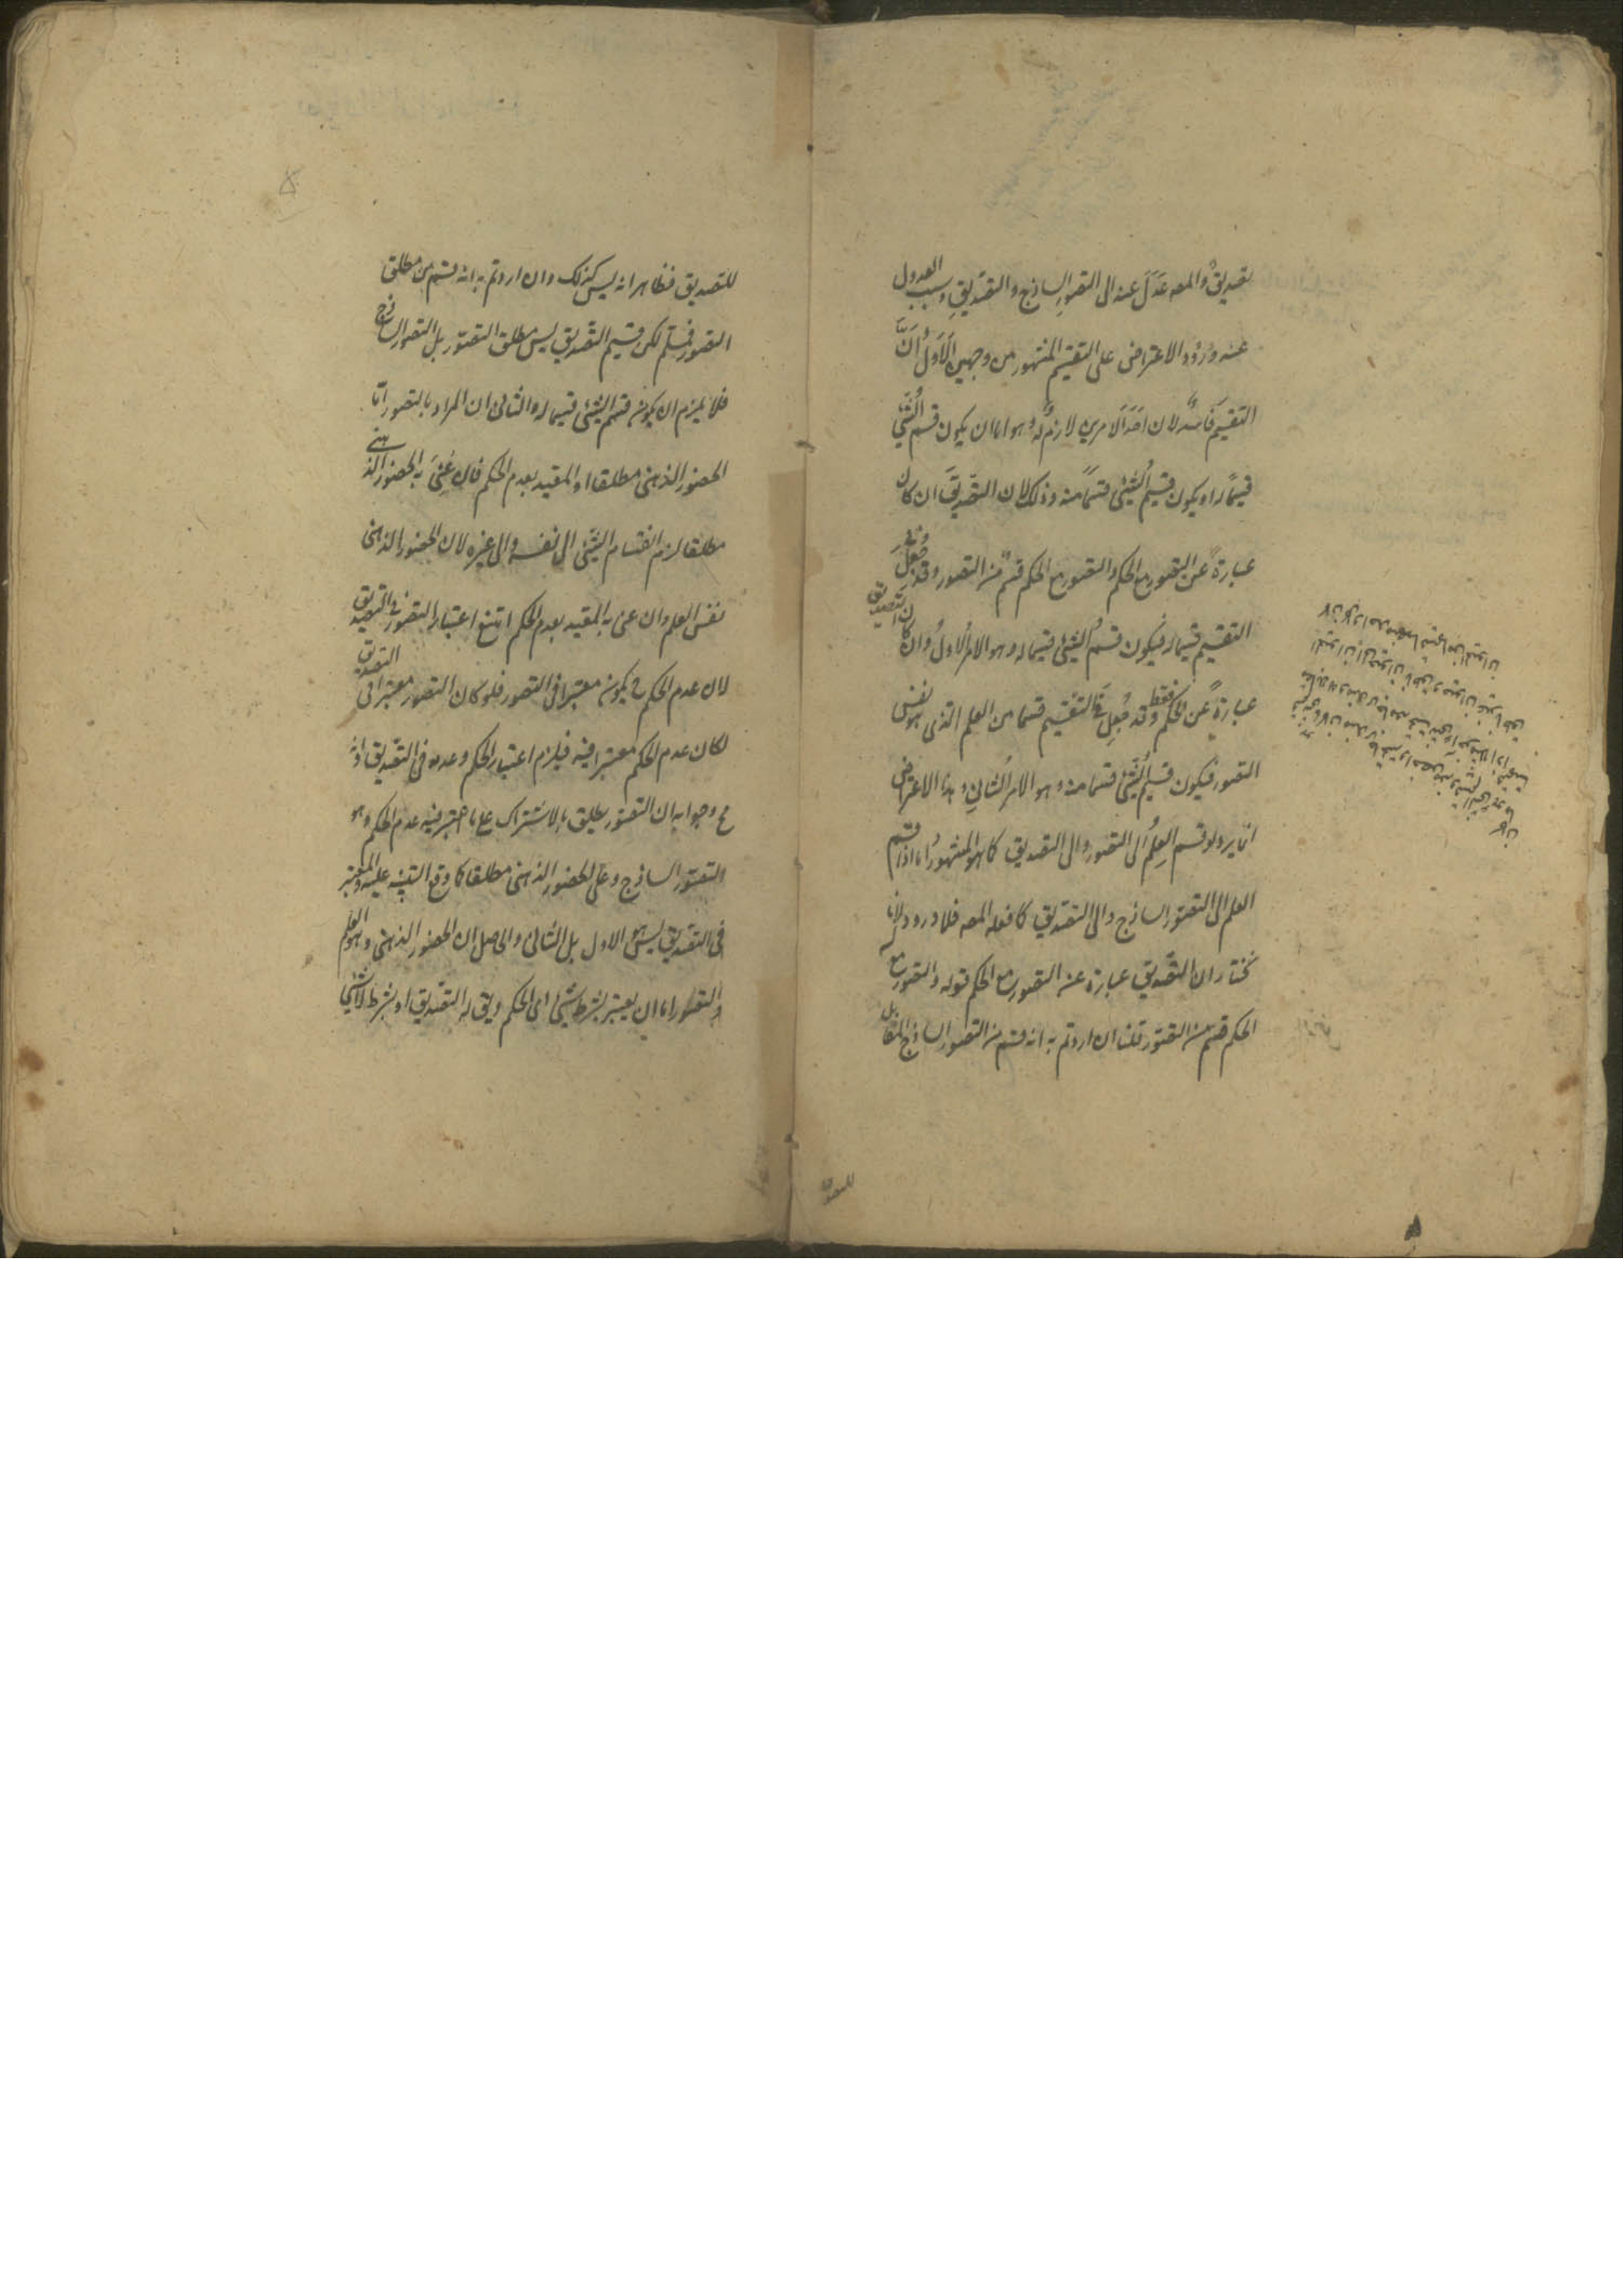 تصديقٌ والمصه عَدَلَ عنه الى التصور الساذج والتصديقِ وسبب العدول
عنه وُرُوْد الاعتراض على التقسيم المشهور من وجهين الاَوّلُ اَنَّ
التقسيم فَاسدٌ لان اَحَدَ الامرين لازمٌ لهُ وهو اما ان يكون قسمُ الشَّئِ
قسيمًا له او يكون قسيمُ الشئ قسمًا منه وذلك لان التصديقَ ان كان
عبارةً عن التصور مع الحكم والتصور مع الحكم قسمٌ من التصور وقد جُعِلَ فى
التقسيم قسيما له فيكون قسمُ الشئ قسيما له وهو الامر الاولُ وان كان التصديق
عبارةً عن الحكم فقط وقد جُعِل فى التقسيم قسما من العلم الذى هو نفس
التصور فيكون قسيم الشئ قسما منه وهو الامر الثانى وهذا الاعتراض
انما يرد لو قسم العلمُ الى التصور والى التصديق كما هو المشهورُ اما اذا قسم
العلم الى التصور الساذج والى التصديق كما فعله المصه فلا ورود لانا
نختار ان التصديق عبارة عن التصور مع الحكم قوله والتصور مع
الحكم قسم من التصور قلنا ان اردتم به انه قسم من التصور الساذج المقابل
للتصديق
للتصديق فظاهر انه ليس كذلك وان اردتم به انه قسم من مطلق
التصور فمسلم لكن قسيم التصديق ليس مطلق التصور بل التصور الساذج
فلا يلزم ان يكون قسم الشئ قسيما له والثانى ان المراد بالتصور اما
الحضور الذهنى مطلقا او المقيد بعدم الحكم فان عُنِىَ به الحضور الذهنى
مطلقا لزم انقسام الشئ الى نفسه والى غيره لان الحضور الذهنى
نفس العلم وان عنى به المقيد بعدم الحكم امتنع اعتبار التصور فى التصديق
لان عدم الحكم ح يكون معتبرا فى التصور فلو كان التصور معتبرا فى التصديق
لكان عدم الحكم معتبرا فيه فيلزم اعتبار الحكم وعدمه فى التصديق وانه
مح وجوابه ان التصور يطلق بالاشتراك على ما اعتبر فيه عدم الحكم وهو
التصور الساذج وعلى الحضور الذهنى مطلقا كما وقع التنبيه عليه والمعتبر
فى التصديق ليس هو الاول بل الثانى والحاصل ان الحضور الذهنى وهو العلم
والتصور اما ان يعتبر بشرط شئ اى الحكم ويق له التصديق او بشرط لا شئ